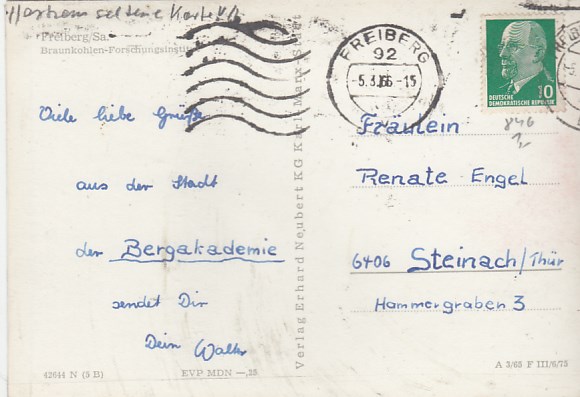 seltene Karte
Freiberg/Sa.
Braunkohlen-Forschungsinstitut
Viele liebe Grüße
aus der Stadt
der Bergakademie
sendet Dir
Dein Walter
42644 N (5 B)
EVP MDN —,25
Verlag Erhard Neubert KG Karl-Marx-Stadt
FREIBERG
92
-5.3.66-15
DEUTSCHE
DEMOKRATISCHE REPUBLIK
10
846
Fräulein
Renate Engel
6406 Steinach/Thür
Hammergraben 3
A 3/65 F III/6/75